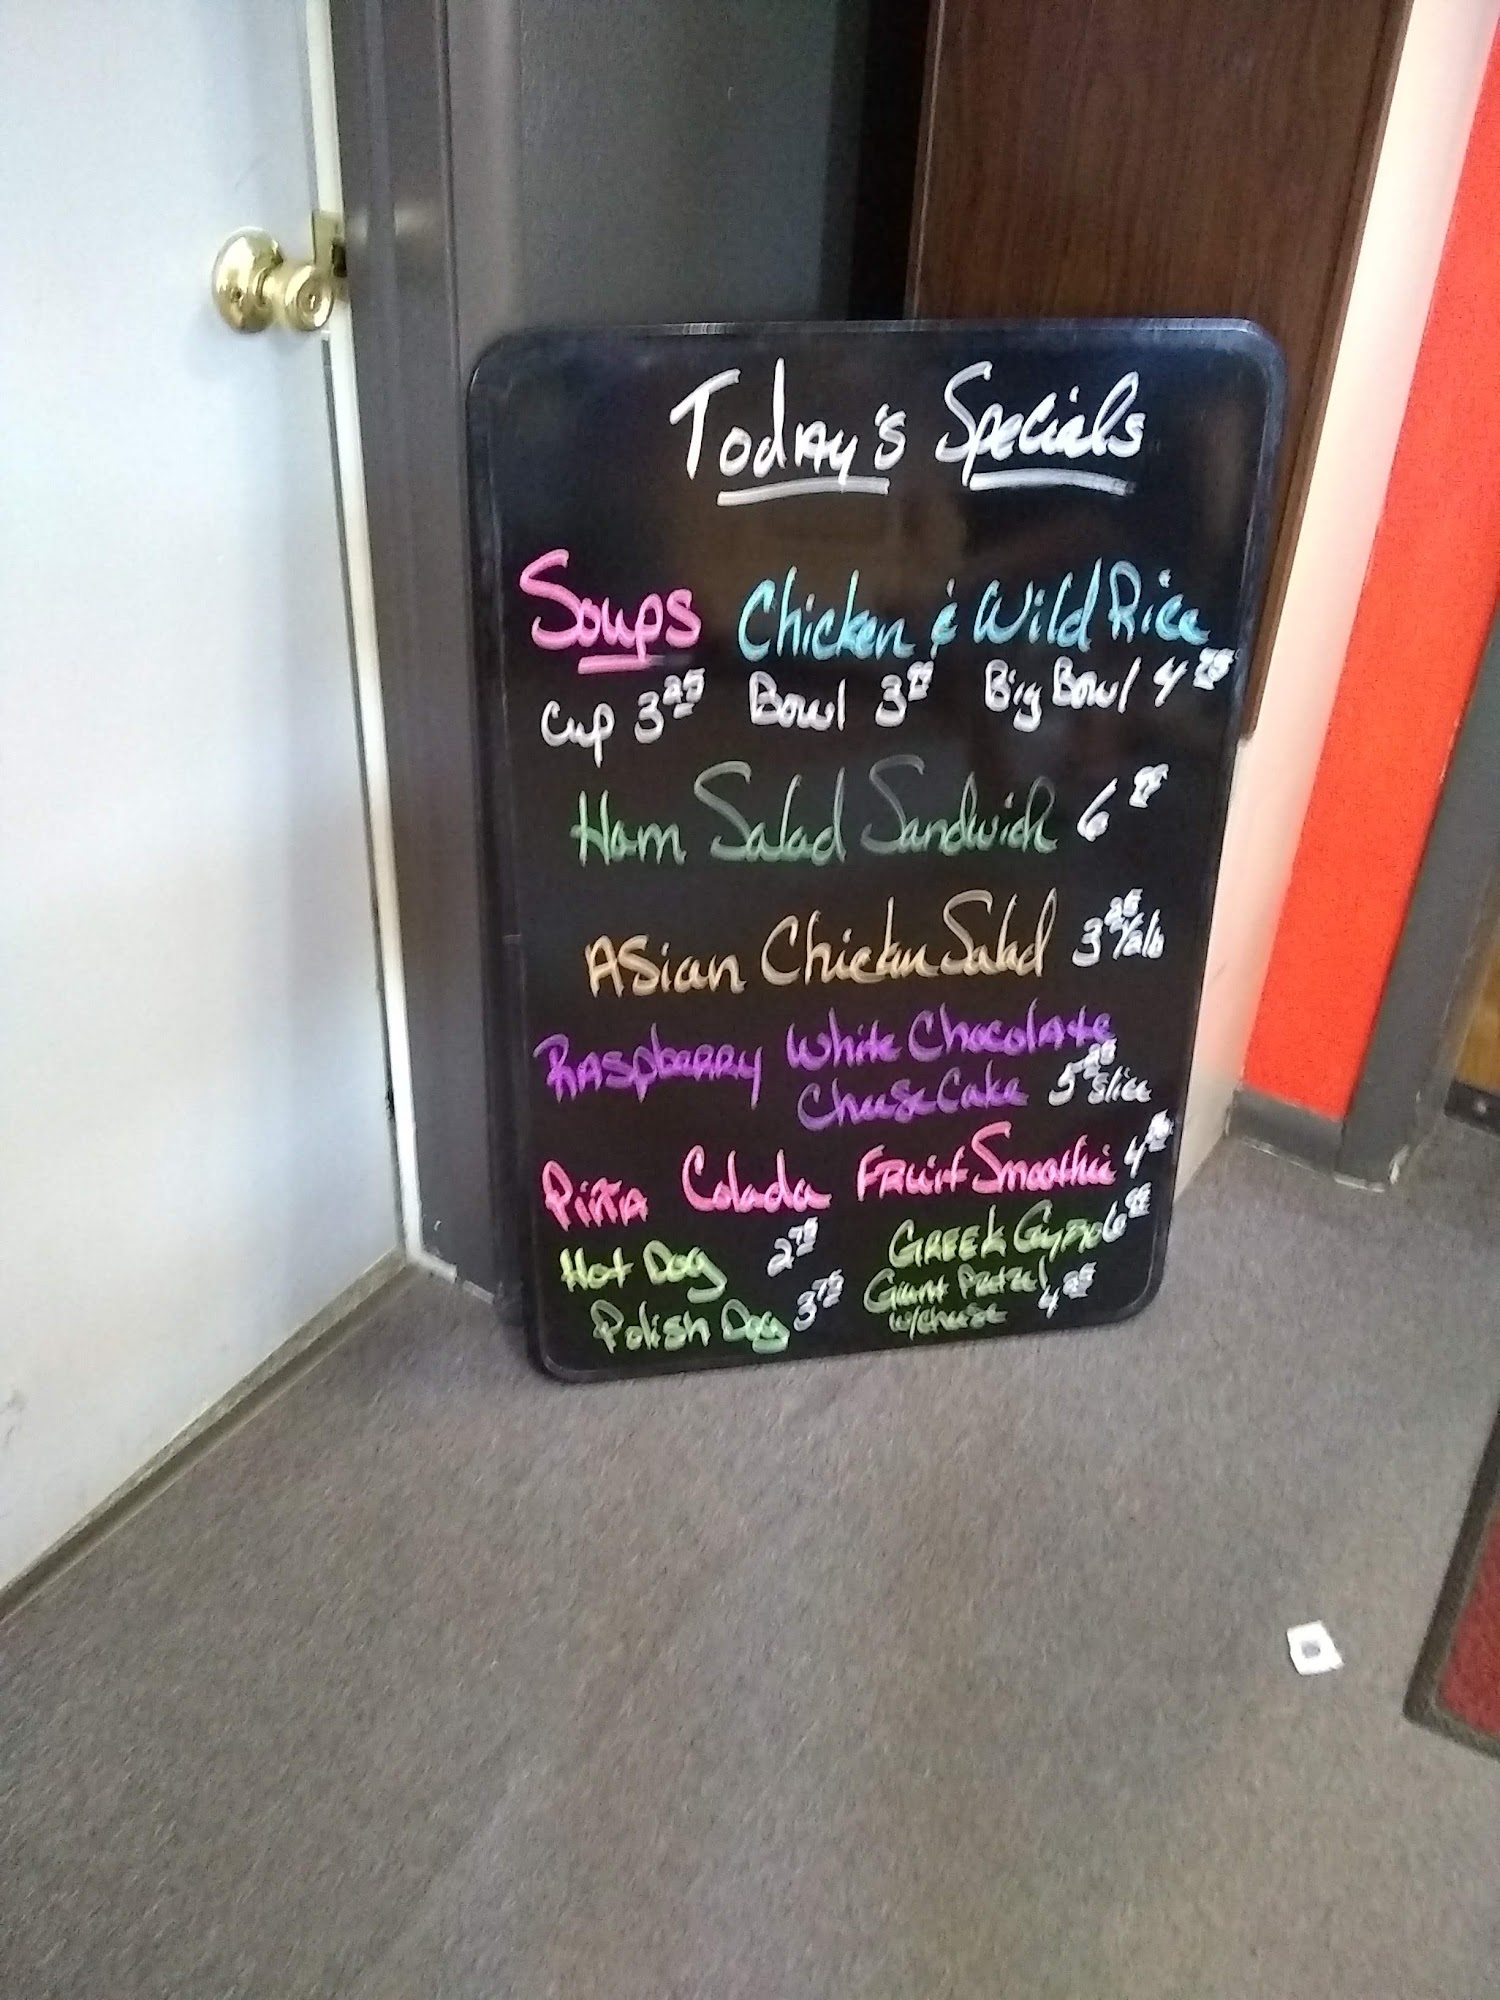 Today's Specials
Soups Chicken & Wild Rice
Cup 3.25 Bowl 3 Big Bowl 4
Ham Salad Sandwich 6
Asian Chicken Salad 3.25 /¼lb
Raspberry White Chocolate
Cheese Cake 5 slice
Piña Colada Fruit Smoothie 4
Hot Dog 2.75 Greek Gyro 6
Polish Dog 3.75 Giant Pretzel
w/cheese 4